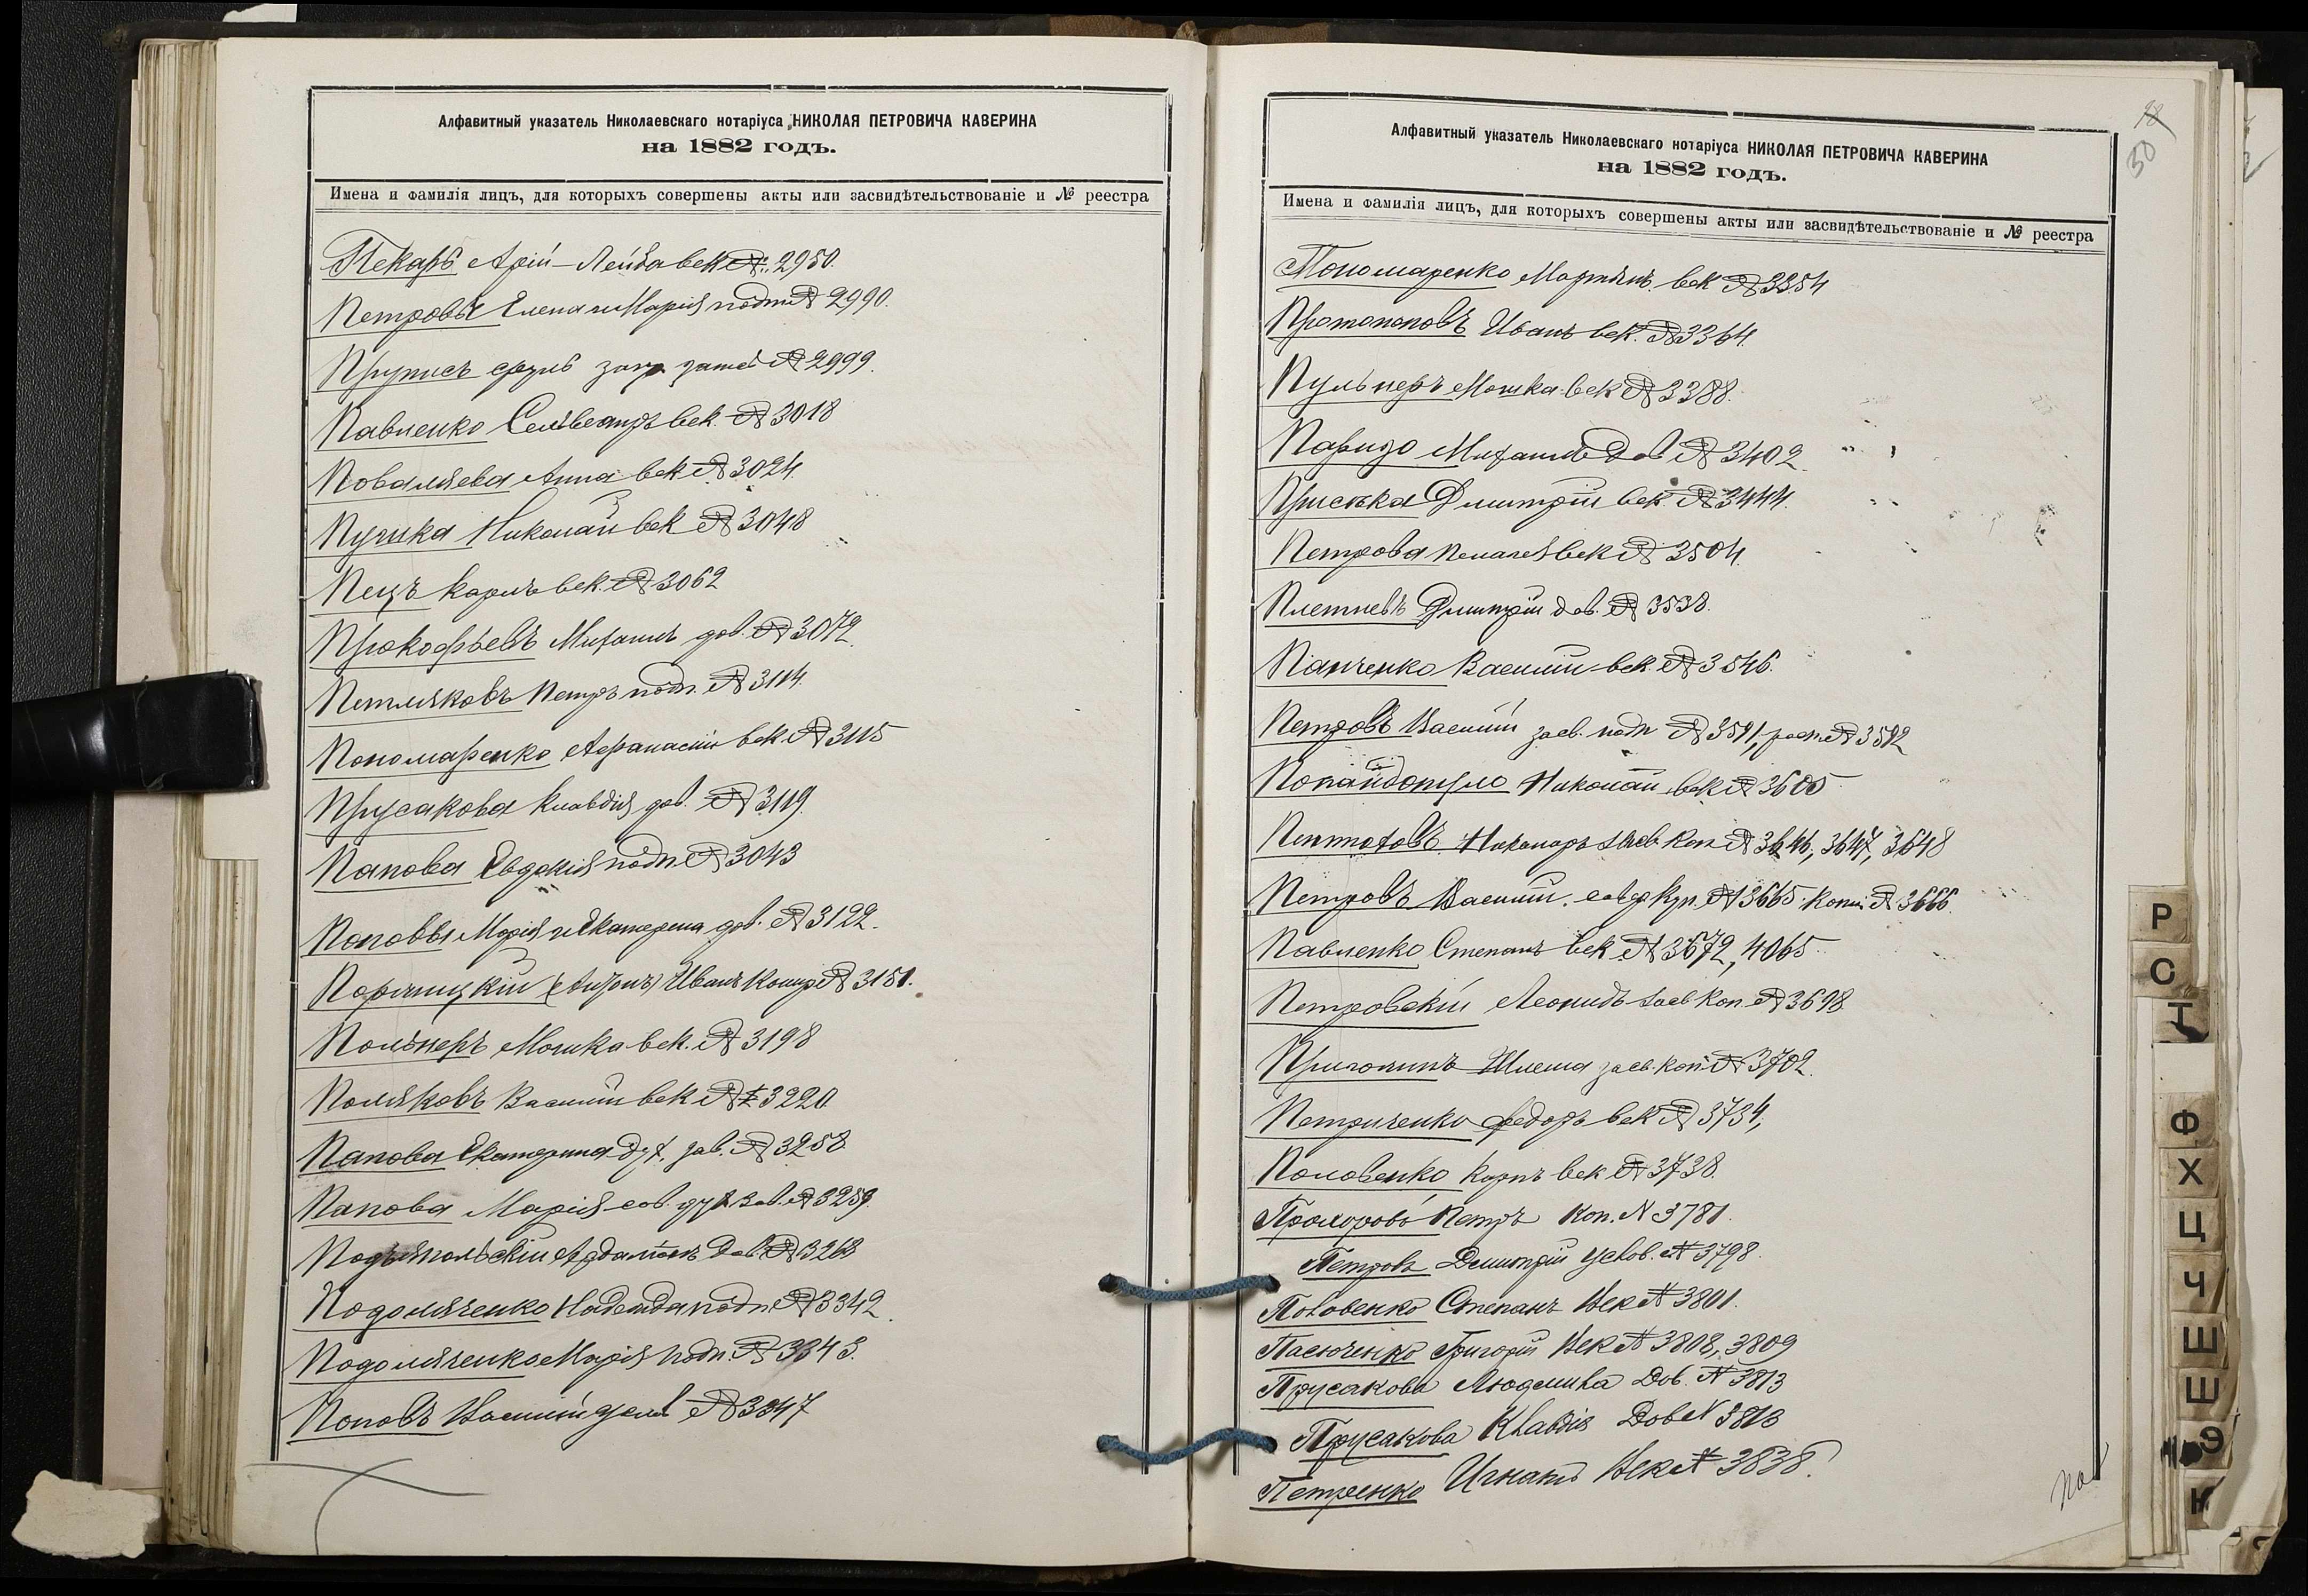 Алфавитный указатель Николаевскаго нотаріуса НИКОЛАЯ ПЕТРОВИЧА КАВЕРИНА
на 1882 годъ.
Имена и фамилія лицъ, для которыхъ совершены акты или засвидѣтельствованіе и № реестра
Пекарь Арій-Лейба век № 2950.
Петровы Елена и Марія подпи № 2990.
Прупись № 2999.
Павленко Селивестръ век. № 3018
Поваляева Анна век № 3024.
Пучика Николай век № 3048
Пецъ Карлъ век. № 3062
Прокофьевъ Михаилъ дов. № 3072.
Петляковъ Петръ подп. № 3114.
Пономаренко Афанасій век. № 3115
Прусакова Клавдія дов. № 3119.
Папова Евдокія подп. № 3043
Поповы Марія и Екатерина дов. № 3122.
Иванъ № 3151.
Польнеръ Мошка век. № 3198
Поляковъ Василій век № 3220
Папова Екатерина дух. зав. № 3258
Папова Марія сов. дух. зав. № 3259.
Дов. № 3263
Подоляченко Надежда подп № 3342.
Подоляченко Марія подп. № 3343.
Поповъ Василій № 3347
Алфавитный указатель Николаевскаго нотаріуса НИКОЛАЯ ПЕТРОВИЧА КАВЕРИНА
на 1882 годъ.
30
Имена и фамилія лицъ, для которыхъ совершены акты или засвидѣтельствованіе и № реестра
Пономаренко Мартынъ век № 3354
Протопоповъ Иванъ век. № 3364.
Пульнеръ Мошка век № 3388.
Паридо Михаилъ Дов № 3402
Приська Дмитрій век № 3444.
Петрова Пелагея век № 3504.
Плетневъ Дмитрій дов. № 3538.
Панченко Василій век. № 3546.
Петровъ Василій засв. подп № 3591, № 3592
Попандопуло Николай век № 3605
Никаноръ засв коп № 3646, 3647, 3648
Петровъ Василій. куп. № 3665. копіи № 3666.
Павленко Степанъ век. № 3672, 4065
Петровскій Леонидъ засв коп. № 3698
Пригонинъ Шлема засв. коп № 3702.
Петриченко Федоръ век № 3734,
Половенко Карпъ век № 3738.
Прохоровъ Петръ Коп. N 3781.
Петровъ Дмитрій Услов. № 3798.
Половенко Степанъ Век № 3801.
Пасюченко Григорій Век № 3808, 3809
Прусакова Людмила Дов. N 3813
Прусакова Клавдія Дов N 3813
Петренко Игнатъ Век № 3838.
Р
С
Т
Ф
Х
Ц
Ч
Ш
Щ
Э